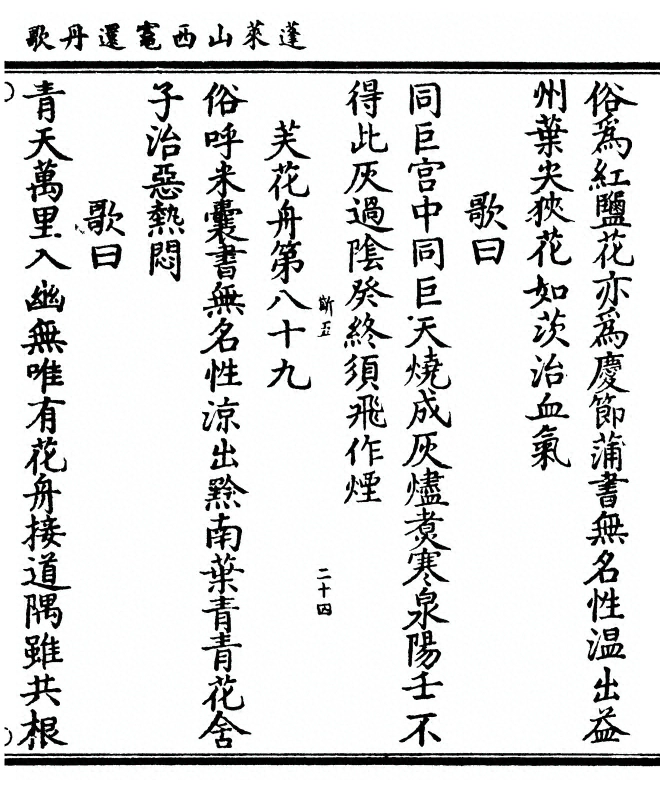 蓬萊山西竈還丹歌
俗爲紅鹽花亦爲慶節蒲書無名性温出益
州葉尖狹花如茨治血氣
歌曰
同巨宫中同巨天燒成灰燼煑寒泉陽壬不
得此灰過陰癸終須飛作煙
斷五
二十四
芙花舟第八十九
俗呼米囊書無名性涼出黔南葉青青花舍
子治惡熱悶
歌曰
青天萬里入幽無唯有花舟接道隅雖共根